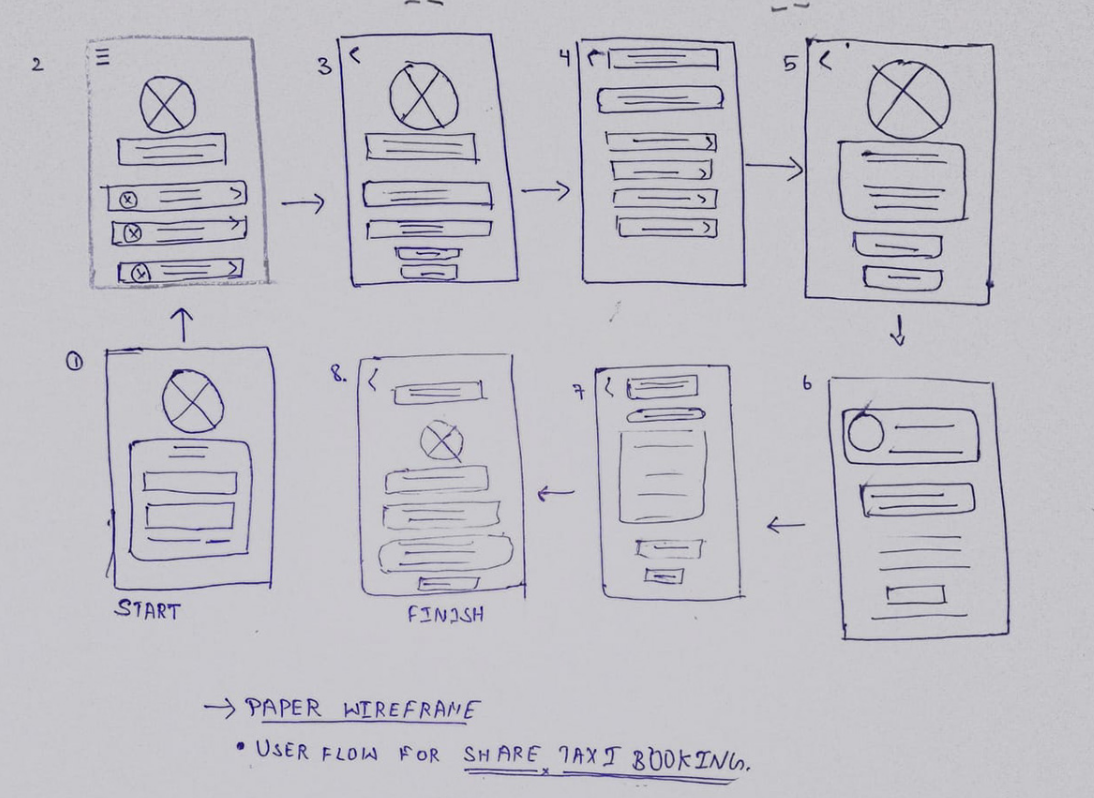 2
3
4
5
①
8.
7
6
START
FINISH
→ PAPER WIREFRAME
• USER FLOW FOR SHARE TAXI BOOKING.